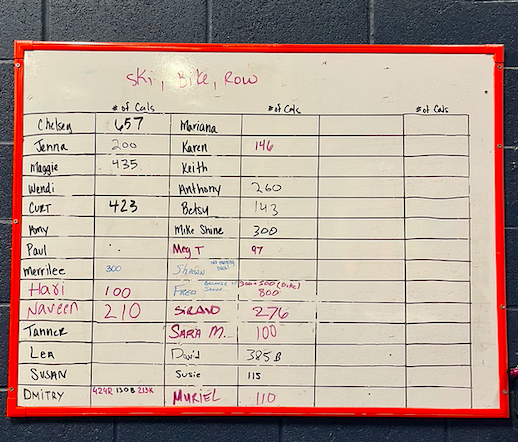 Ski, Bike, Row
# of Cals # of Cals # of Cals
Chelsey 657 Mariana
Jenna 200 Karen 146
Maggie 435 Keith
Wendi Anthony 260
CURT 423 Betsy 143
Amy Mike Shine 300
Paul Meg T 97
merrilee 300 Shawn
Hari 100 FRED 300+500 (Bike) 800
Naveen 210 SIRAND 276
Tanner SARA M. 100
Lea David 385 B
SUSAN Susie 115
DMITRY 424R 130B 213K MURIEL 110